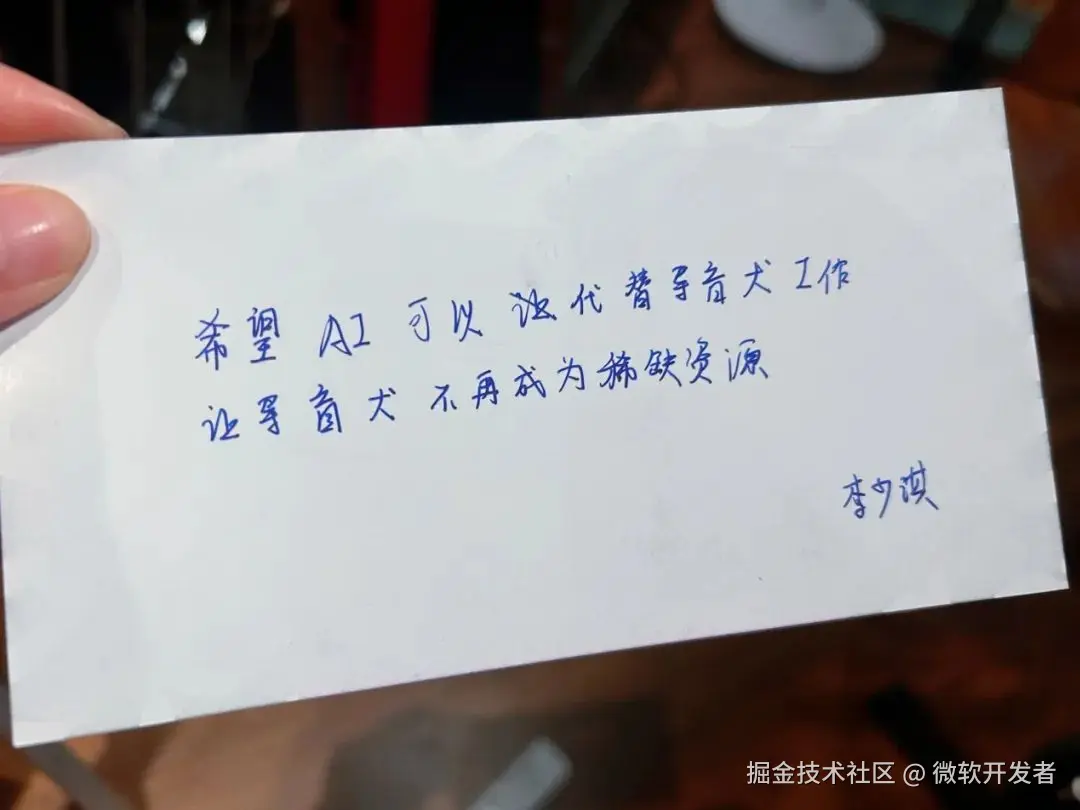 希望 AI 可以让代替导盲犬工作
让导盲犬不再成为稀缺资源
李少淇
掘金技术社区 @ 微软开发者